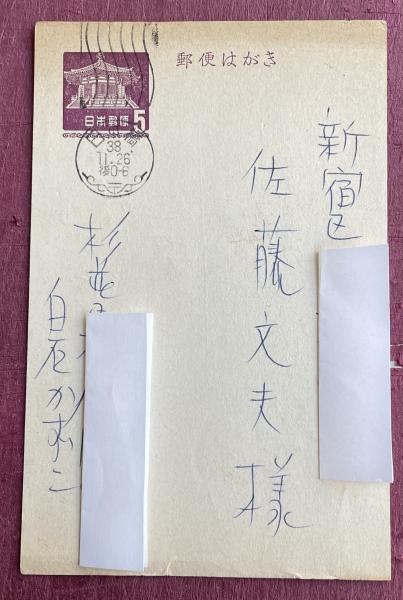 郵便はがき
日本郵便
5
38
11.26
后0-6
新宿区
佐藤文夫様
杉並区
白石かずこ